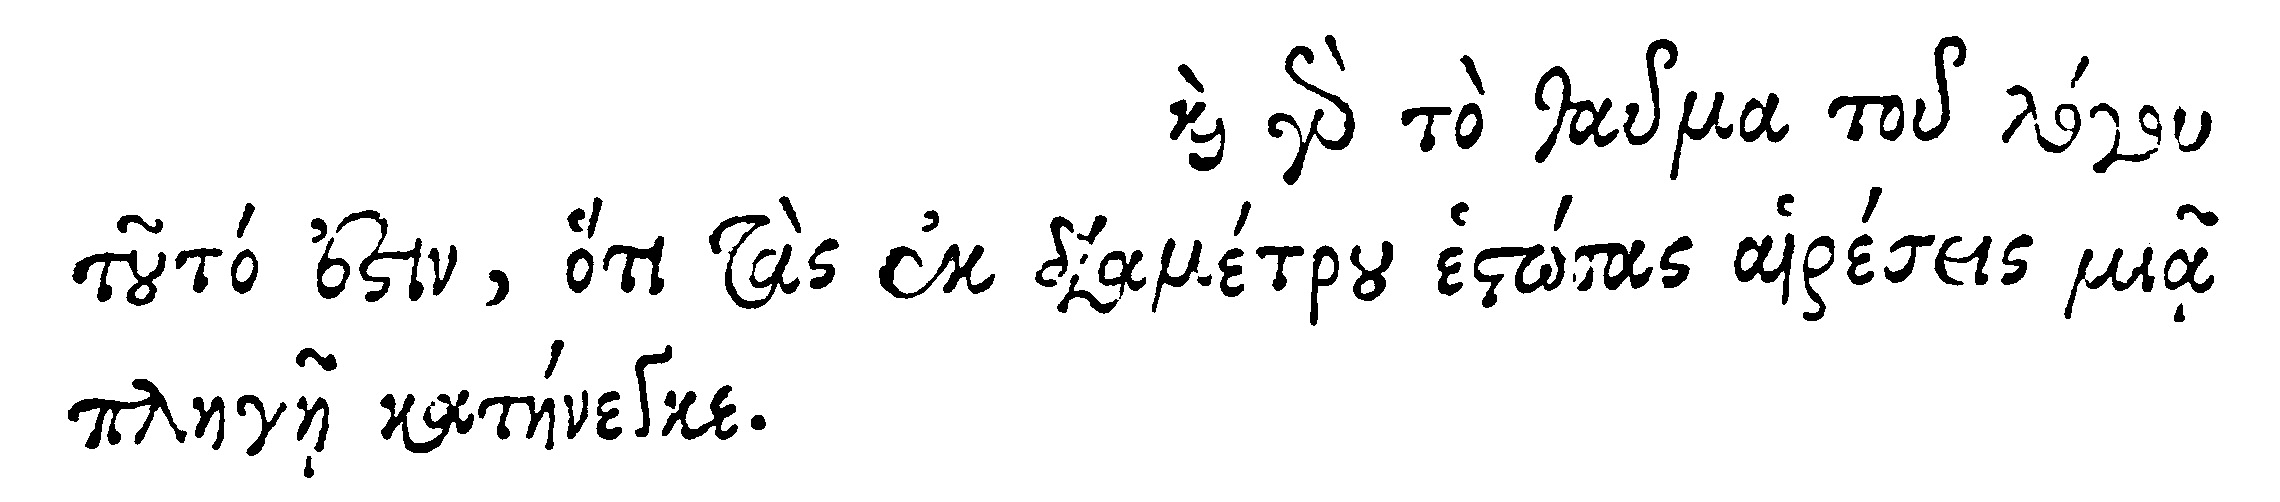 καὶ γὰρ τὸ θαῦμα τοῦ λόγου
τοῦτό ἐστιν, ὅτι τὰς ἐκ διαμέτρου ἑστώσας αἱρέσεις μιᾷ
πληγῇ κατήνεγκε.